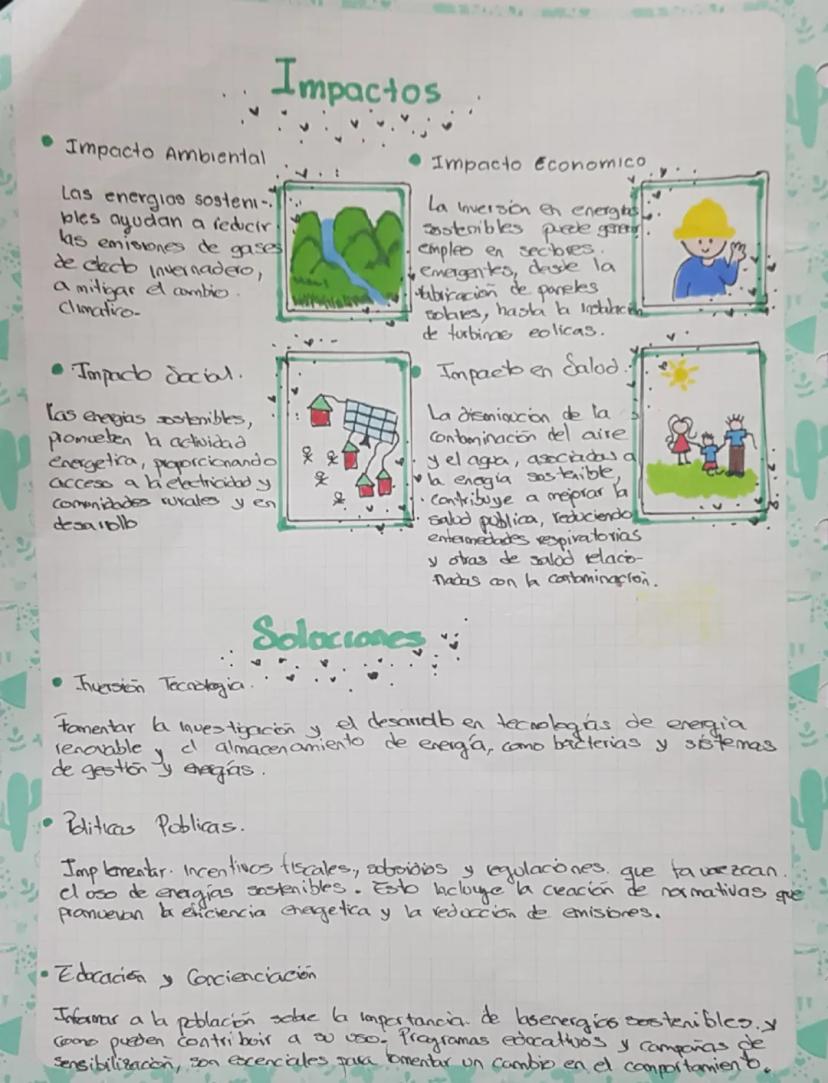 Impactos
• Impacto Ambiental
Las energias sosteni-
bles ayudan a reducir
las emisiones de gases
de efecto invernadero,
a mitigar el cambio
climatico.
• Impacto Economico
La inversión en energias
sostenibles puede generar
empleo en sectores
emergentes, desde la
fabricación de paneles
solares, hasta la instalación
de turbinas eolicas.
• Impacto Social.
Las energias sostenibles,
promueben la actividad
energetica, proporcionando
acceso a la electricidad y
comonidades rurales y en
desarollo
• Impacto en Salud.
La disminucion de la
contaminación del aire
y el agua, asociadas a
la energía sostenible,
contribuye a mejorar la
salud publica, reduciendo
enfermedades respiratorias
y otras de salud relacio-
nadas con la contaminación.
Soluciones
• Inversión Tecnologia.
Fomentar la investigación y el desarrollo en tecnologías de energia
renovable y el almacenamiento de energía, como bacterias y sistemas
de gestión y energías.
• Politicas Publicas.
Implementar incentivos fiscales, subsidios y regulaciones que favorezcan
el uso de energías sostenibles. Esto incluye la creación de normativas que
promuevan la eficiencia energetica y la reducción de emisiones.
• Educación y Concienciación
Informar a la población sobre la importancia de las energias sostenibles y
como pueden contribuir a su uso. Programas educativos y campañas de
sensibilización, son escenciales para fomentar un cambio en el comportamiento.